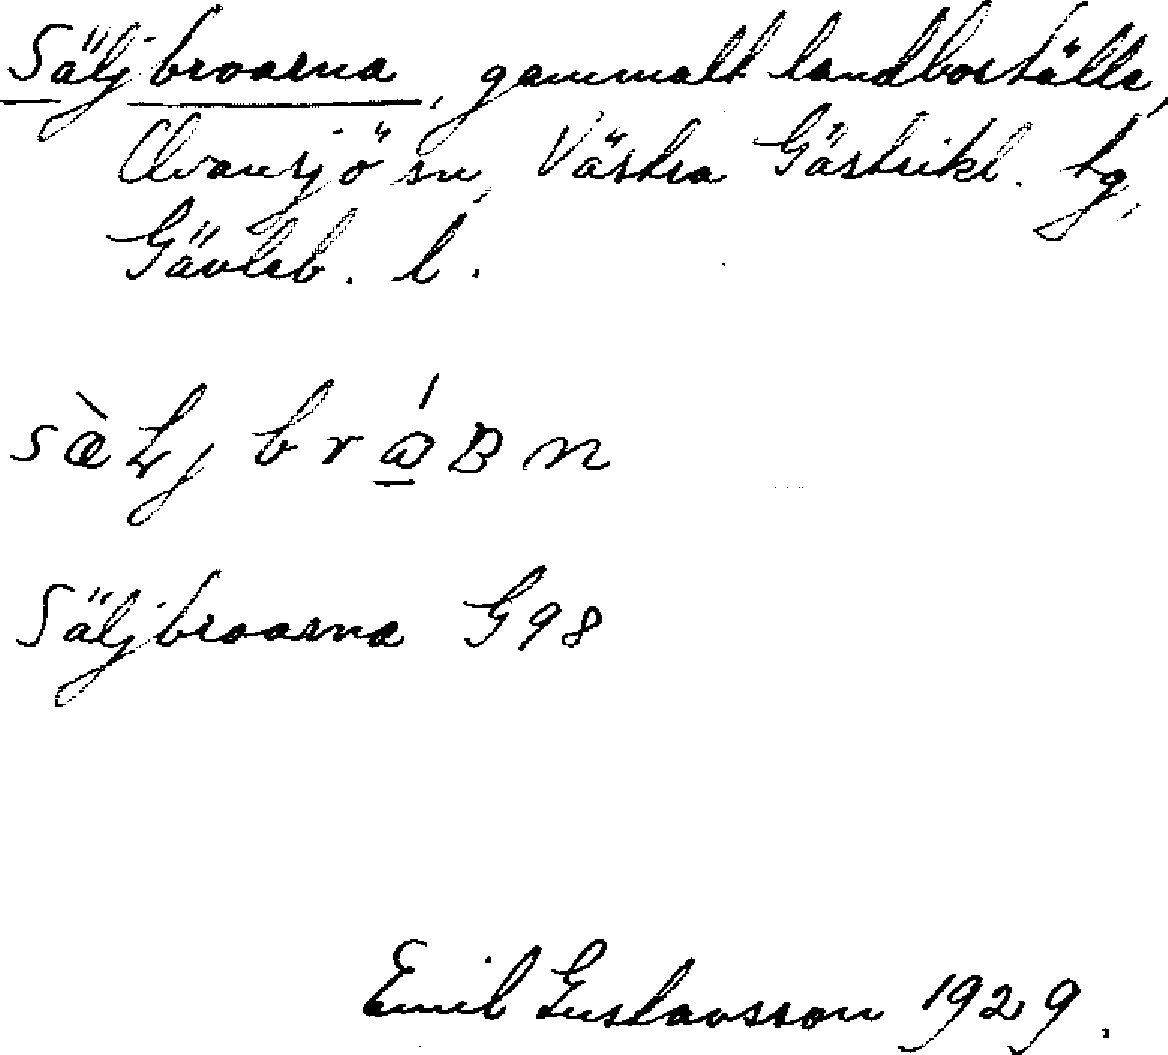 Säljbroarna, gammalt landboställe,
Ovansjö sn, Västra Gästrikl. tg,
Gävleb. l.
Säljbroarna G98
Emil Gustavsson 1929.